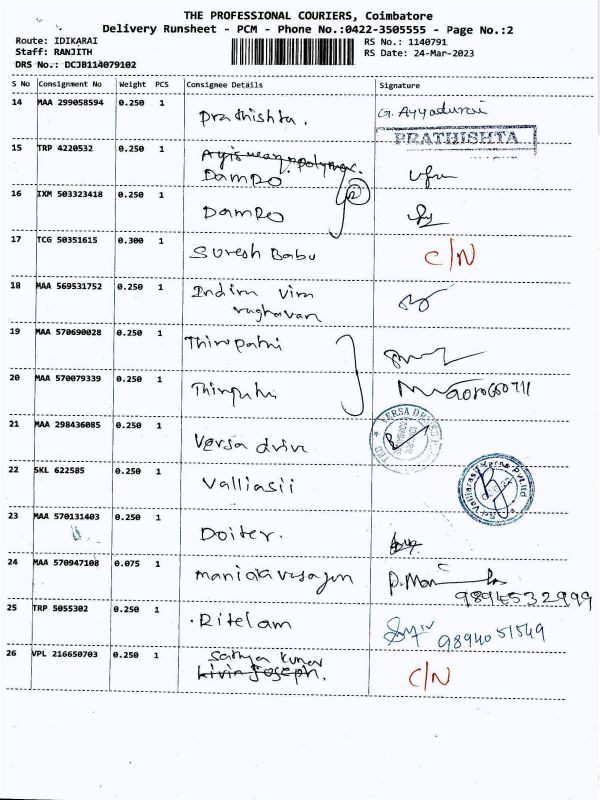 THE PROFESSIONAL COURIERS, Coimbatore
Delivery Runsheet - PCM - Phone No.:0422-3505555 - Page No.:2
Route: IDIKARAI RS No.: 1140791
Staff: RANJITH RS Date: 24-Mar-2023
DRS No.: DCJB114079102
S No Consignment No Weight PCS Consignee Details Signature
14 MAA 299058594 0.250 1 Prathishta. G. Ayyadurai
PRATHISHTA
15 TRP 4220532 0.250 1 polymer.
DamPO
16 IXM 503323418 0.250 1 DamPO
2
17 TCG 50351615 0.300 1 Suresh Babu C/N
18 MAA 569531752 0.250 1 Indira vira
raghavan
19 MAA 570690028 0.250 1 Thirupathi
20 MAA 570079339 0.250 1 Thirupathi
21 MAA 298436085 0.250 1 Versa driv
VERSA
22 SKL 622585 0.250 1 Valliasii
23 MAA 570131403 0.250 1 Doiter.
24 MAA 570947108 0.075 1 P.Mani
9894532999
25 TRP 5055302 0.250 1 Ritelam
9894051549
26 VPL 216650703 0.250 1 Sathya kumar C/N
Livin Joseph.